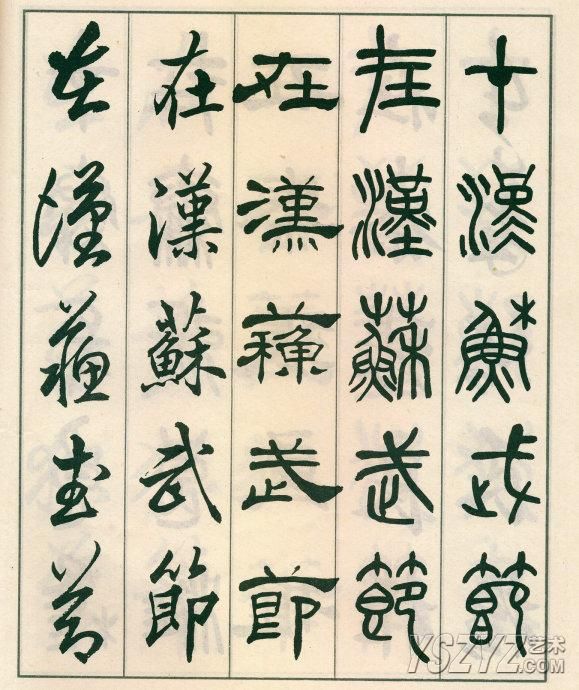 在漢蘇武節
在漢蘇武節
在漢蘇武節
在漢蘇武節
在漢蘇武節
YSZYZ艺术
.com